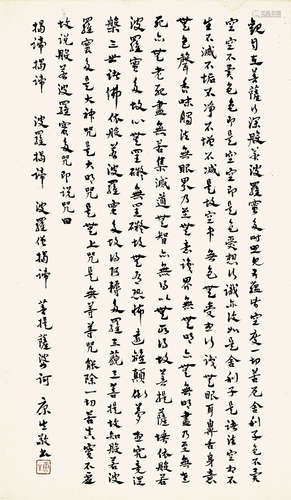 觀自在菩薩行深般若波羅蜜多時照見五蘊皆空度一切苦厄舍利子色不異
空空不異色色即是空空即是色受想行識亦復如是舍利子是諸法空相不
生不滅不垢不淨不增不減是故空中無色無受想行識無眼耳鼻舌身意
無色聲香味觸法無眼界乃至無意識界無無明亦無無明盡乃至無老
死亦無老死盡無苦集滅道無智亦無得以無所得故菩提薩埵依般若
波羅蜜多故心無罣礙無罣礙故無有恐怖遠離顛倒夢想究竟涅
槃三世諸佛依般若波羅蜜多故得阿耨多羅三藐三菩提故知般若波
羅蜜多是大神咒是大明咒是無上咒是無等等咒能除一切苦真實不虛
故說般若波羅蜜多咒即說咒曰
揭諦揭諦 波羅揭諦 波羅僧揭諦 菩提薩婆訶 康生敬書